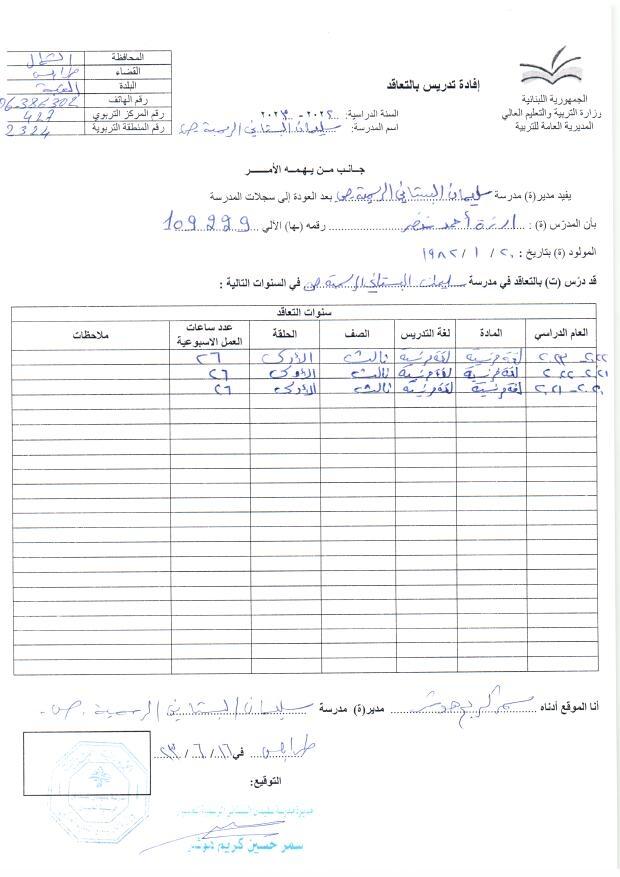 الجمهورية اللبنانية
وزارة التربية والتعليم العالي
المديرية العامة للتربية
إفادة تدريس بالتعاقد
السنة الدراسية: ٢٠٢٢ - ٢٠٢٣
اسم المدرسة: سليمان البستاني الرسمية ص.
المحافظة الشمال
القضاء طرابلس
البلدة القبة
رقم الهاتف 06.386302
رقم المركز التربوي 427
رقم المنطقة التربوية 2324
جانب من يهمه الأمر
يفيد مدير(ة) مدرسة سليمان البستاني الرسمية ص. بعد العودة إلى سجلات المدرسة
بأن المدرّس (ة) : أحمد خضر رقمه (ها) الآلي 109999
المولود (ة) بتاريخ : ٢٠ / ١ / ١٩٨٢
قد درّس (ت) بالتعاقد في مدرسة سليمان البستاني الرسمية ص في السنوات التالية :
سنوات التعاقد
العام الدراسي المادة لغة التدريس الصف الحلقة عدد ساعات العمل الاسبوعية ملاحظات
٢٠٢٢-٢٠٢٣ لغة فرنسية لغة فرنسية ثالث الأولى ٢٦
٢٠٢١-٢٠٢٢ لغة فرنسية لغة فرنسية ثالث الأولى ٢٦
٢٠٢٠-٢٠٢١ لغة فرنسية لغة فرنسية ثالث الأولى ٢٦
أنا الموقع أدناه سمر كريم هوشر مدير(ة) مدرسة سليمان البستاني الرسمية ص.
طرابلس في ١٦ / ٦ / ٢٣
التوقيع:
مديرة مدرسة سليمان البستاني الرسمية
سمر حسين كريم هوشر